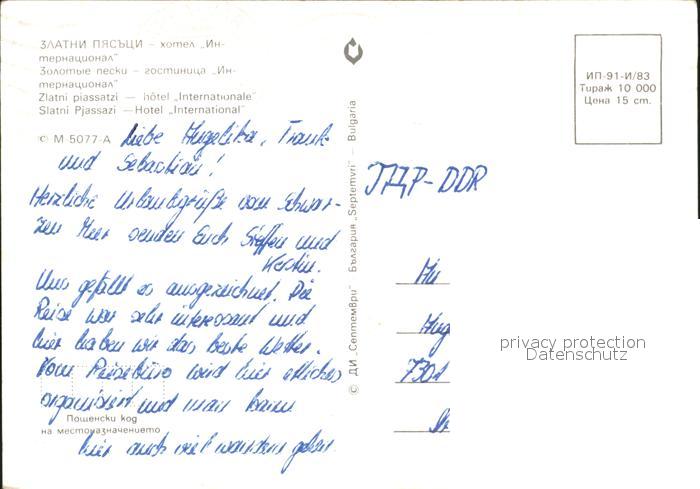 ЗЛАТНИ ПЯСЪЦИ – хотел „Ин-
тернационал"
Золотые пески – гостиница „Ин-
тернационал"
Zlatni piassatzi — hôtel „Internationale"
Slatni Pjassazi — Hotel „International"
© М-5077-А
Liebe Angelika, Frank
und Sebastian!
Herzliche Urlaubsgrüße vom Schwar-
zen Meer senden Euch Steffen und
Kerstin.
Uns gefällt es ausgezeichnet. Die
Reise war sehr interessant und
hier haben wir das beste Wetter.
Vom Reisebüro wird hier etliches
organisiert und man kann
hier auch viel wandern gehen.
Пощенски код
на местоназначението
© ДИ „Септември" България „Septemvri" – Bulgaria
ИП-91-И/83
Тираж 10 000
Цена 15 ст.
ГДР-DDR
An
Ang
7301
privacy protection
Datenschutz